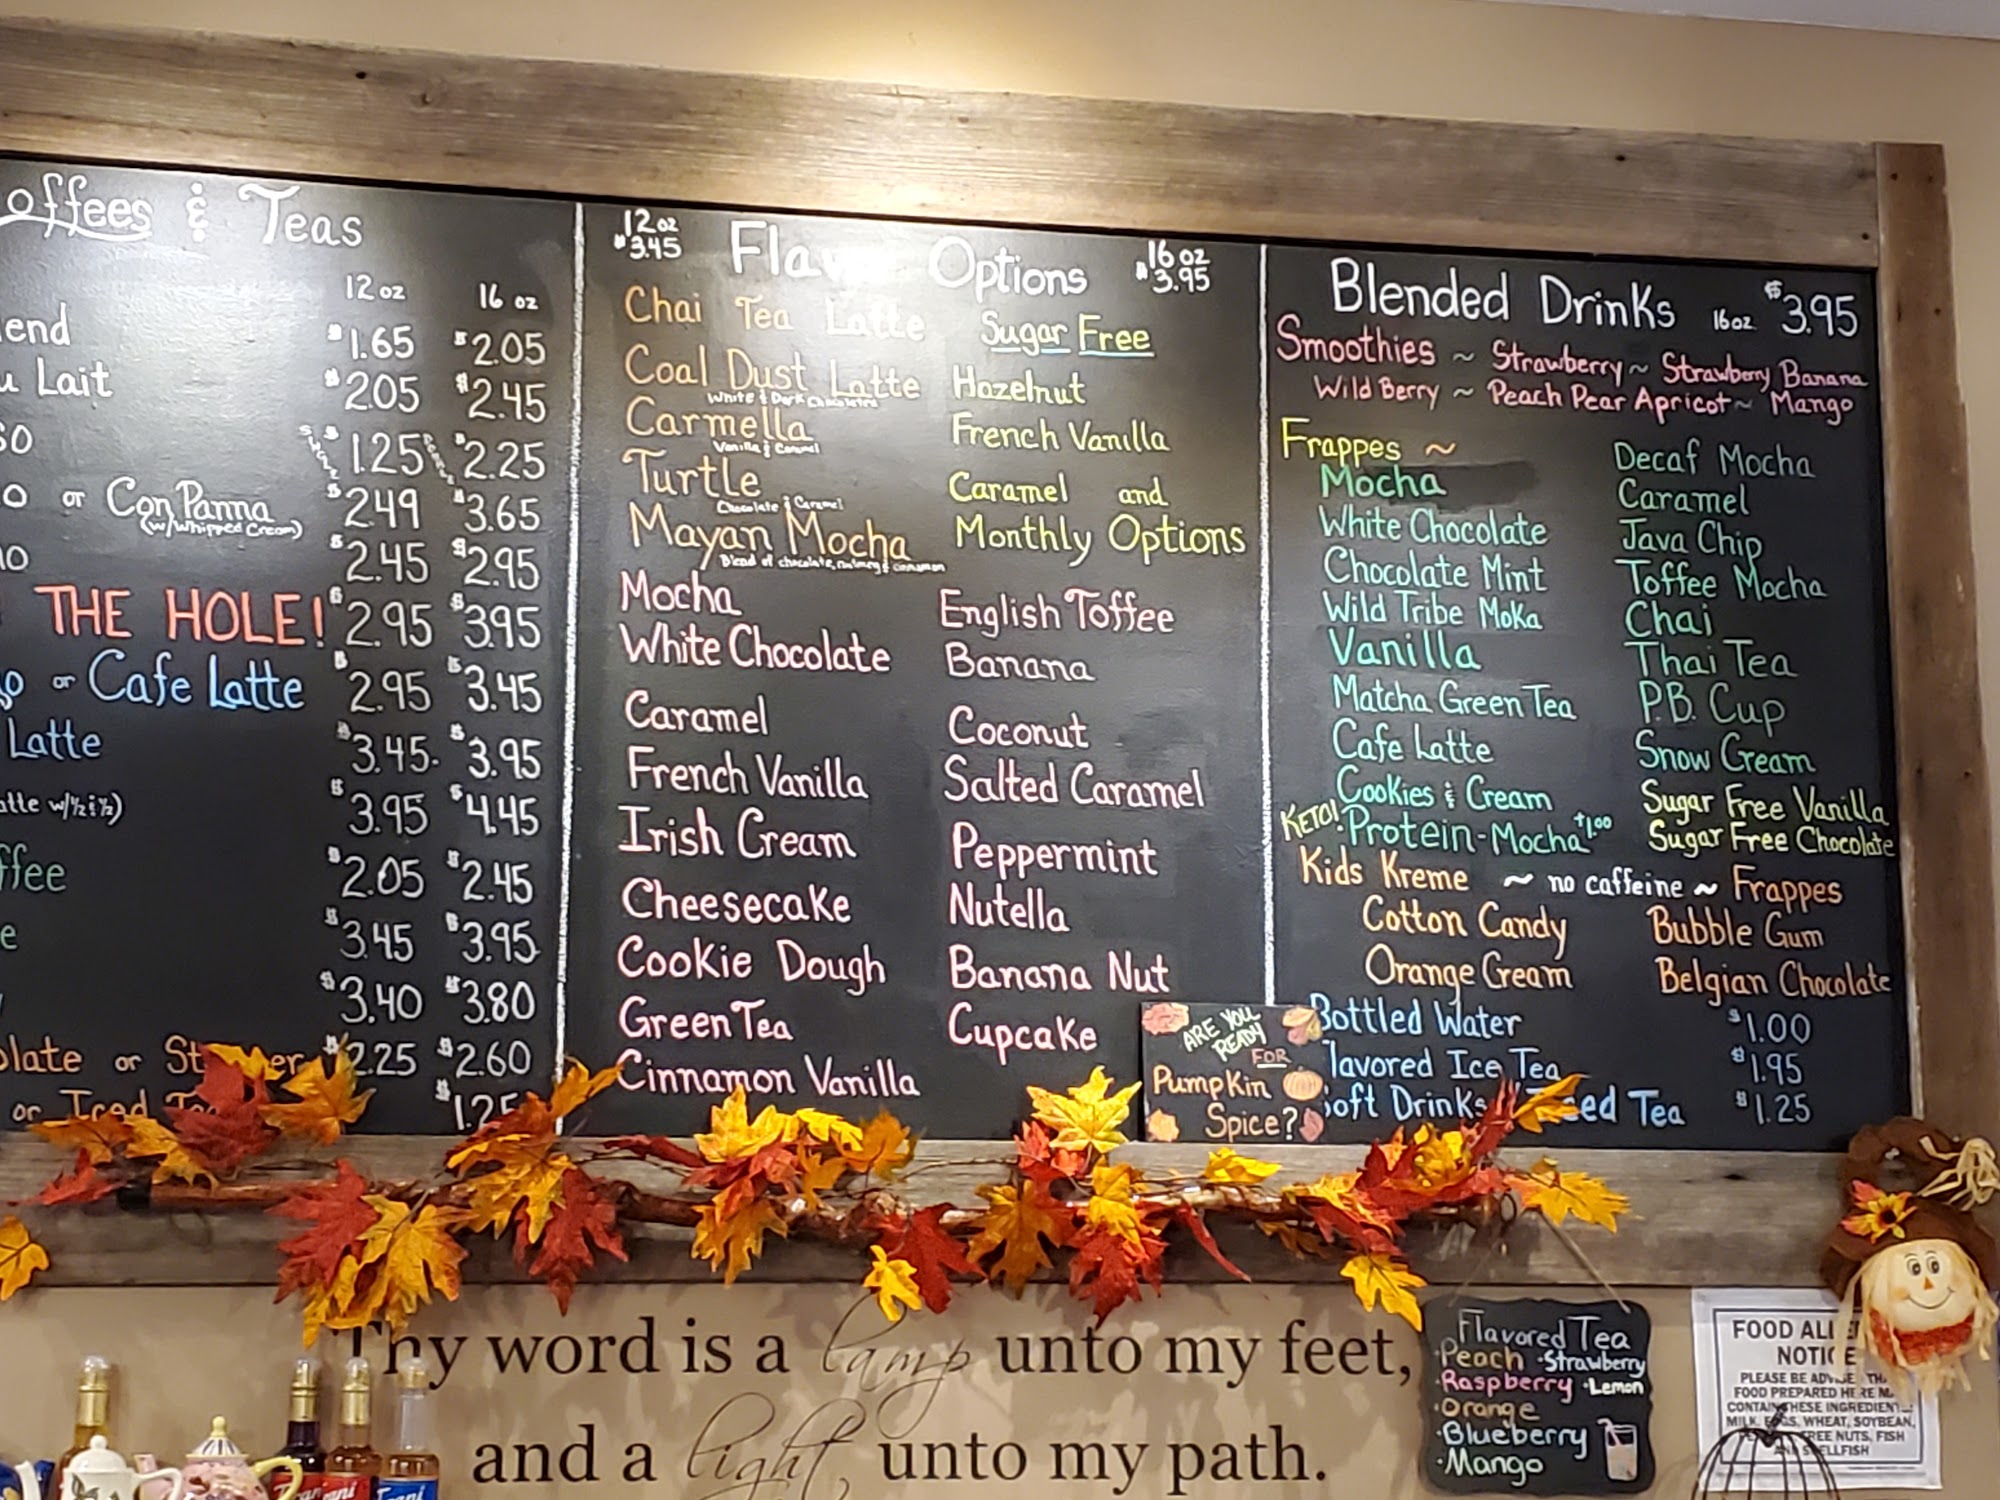 offees & Teas
12 oz 16 oz
end $1.65 $2.05
u Lait $2.05 $2.45
so $1.25 $2.25
o or Con Panna $2.49 $3.65
(w/Whipped Cream)
no $2.45 $2.95
THE HOLE! $2.95 $3.95
go or Cafe Latte $2.95 $3.45
Latte $3.45 $3.95
atte w/½ & ½) $3.95 $4.45
ffee $2.05 $2.45
e $3.45 $3.95
$3.40 $3.80
olate or St mer $2.25 $2.60
or Iced Tea $1.25
12 oz
$3.45
Options
16 oz
$3.95
Chai Tea Latte
Coal Dust Latte
White & Dark Chocolates
Carmella
Vanilla & Caramel
Turtle
Chocolate & Caramel
Mayan Mocha
Blend of chocolate, nutmeg & cinnamon
Sugar Free
Hazelnut
French Vanilla
Caramel and
Monthly Options
Mocha
White Chocolate
Caramel
French Vanilla
Irish Cream
Cheesecake
Cookie Dough
Green Tea
Cinnamon Vanilla
English Toffee
Banana
Coconut
Salted Caramel
Peppermint
Nutella
Banana Nut
Cupcake
ARE YOU
READY
FOR
PUMPKIN
SPICE?
Blended Drinks 16oz $3.95
Smoothies ~ Strawberry ~ Strawberry Banana
Wild Berry ~ Peach Pear Apricot ~ Mango
Frappes ~
Mocha
White Chocolate
Chocolate Mint
Wild Tribe Moka
Vanilla
Matcha Green Tea
Cafe Latte
Cookies & Cream
KETO! Protein-Mocha +1.00
Decaf Mocha
Caramel
Java Chip
Toffee Mocha
Chai
Thai Tea
P.B. Cup
Snow Cream
Sugar Free Vanilla
Sugar Free Chocolate
Kids Kreme ~ no caffeine ~ Frappes
Cotton Candy Bubble Gum
Orange Cream Belgian Chocolate
Bottled Water $1.00
lavored Ice Tea $1.95
Soft Drinks ced Tea $1.25
Thy word is a lamp unto my feet,
and a light unto my path.
Flavored Tea
·Peach ·Strawberry
·Raspberry ·Lemon
·Orange
·Blueberry
·Mango
FOOD ALLE
NOTICE
PLEASE BE ADVISED THA
FOOD PREPARED HERE MA
CONTAIN THESE INGREDIENTS:
MILK, EGGS, WHEAT, SOYBEAN,
TREE NUTS, FISH
AND SHELLFISH